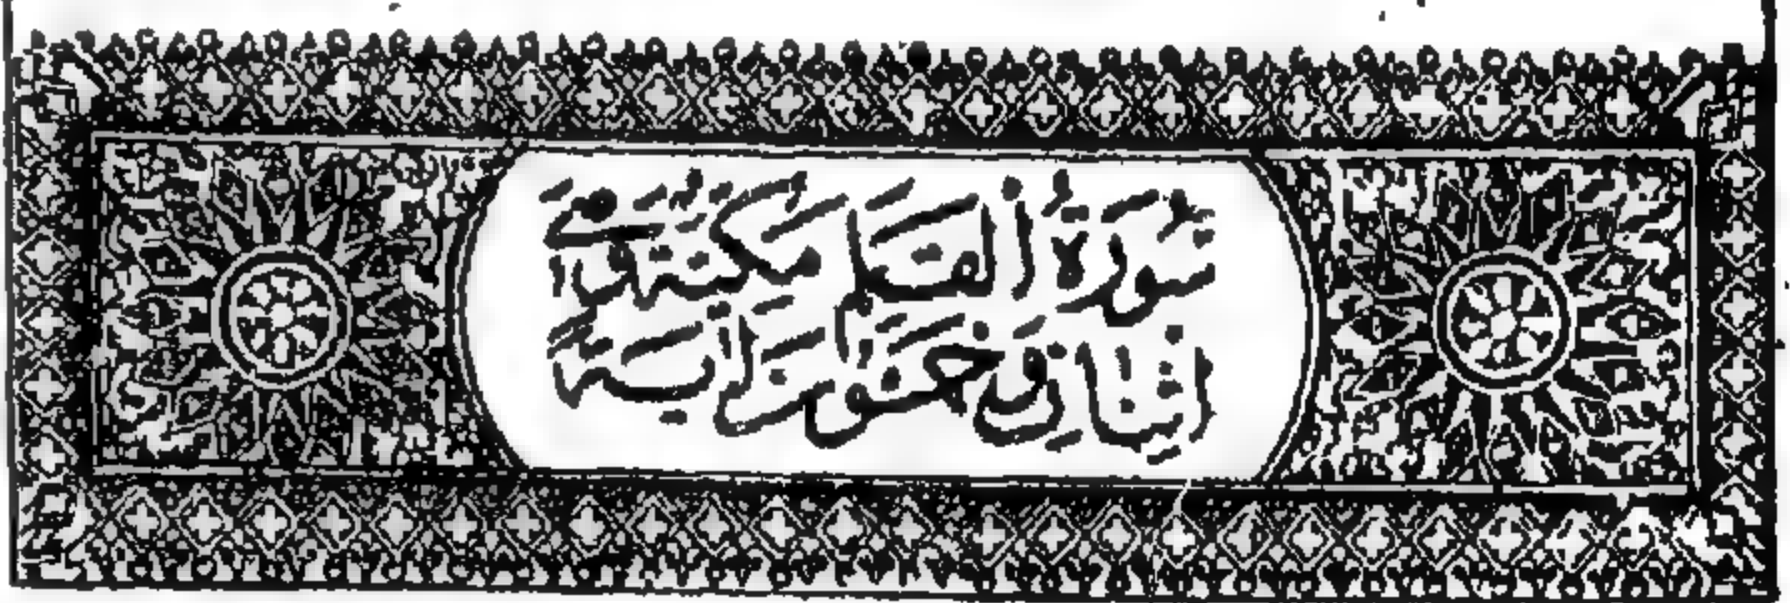 سُورَةُ ٱلْقَلَمِ مَكِّيَّةٌ وَهِيَ
اثْنَانِ وَخَمْسُونَ اٰيَةً